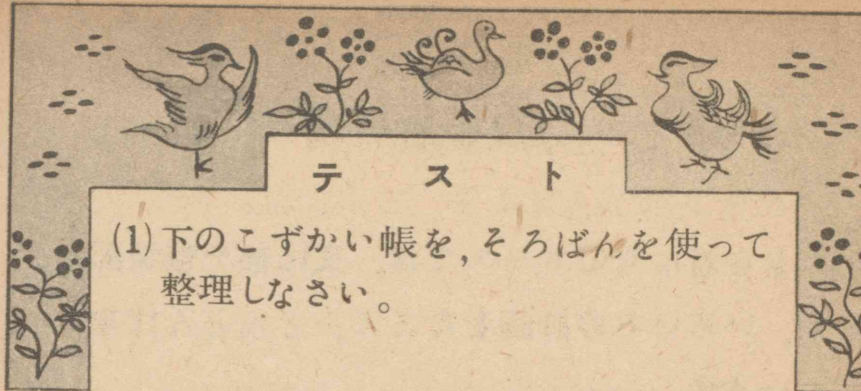 テスト
(1)下のこずかい帳を,そろばんを使って
整理しなさい。